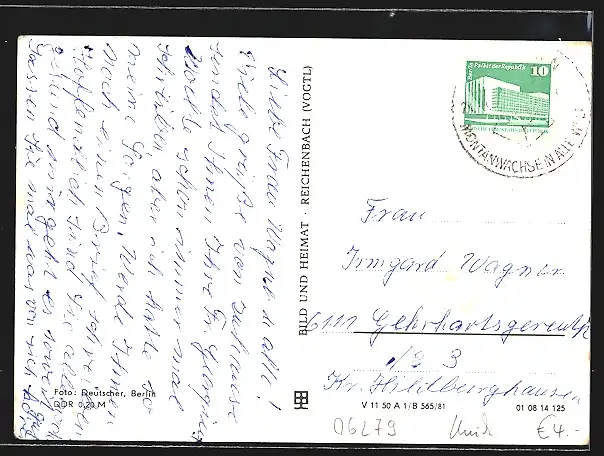 Liebe Frau Wagner u. alle!
Viele Grüße von zuhause
sendet Ihnen Ihre Fr.
Wollte schon immer mal
schreiben aber ich hatte so
meine Sorgen, Werde Ihnen
noch einen Brief schreiben
Hoffentlich sind Sie alle
gesund und es
Lassen Sie mal was von sich hören
Foto: Deutscher, Berlin
DDR 0,20 M
BILD UND HEIMAT · REICHENBACH (VOGTL)
Berlin, Palast der Republik
10
MONTANWACHSE IN ALLE WELT
Frau
Irmgard Wagner
6111 Gehrhartsgereuth
Nr 3
Kr. Hildburghausen
V 11 50 A 1/B 565/81
01 08 14 125
06279
€ 4.-